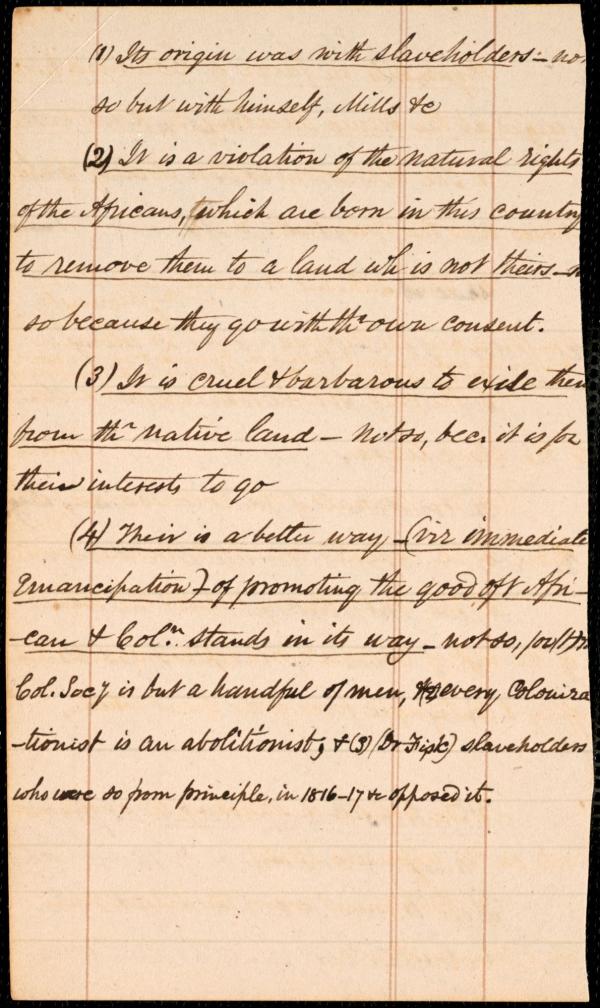 (1) Its origin was with slaveholders – no
so but with himself, Mills &c
(2) It is a violation of the natural rights
of the Africans, which are born in this country
to remove them to a land wh is not theirs –
so because they go with thr own consent.
(3) It is cruel & barbarous to exile them
from thr native land – not so, bec. it is for
their interests to go
(4) Their is a better way – (viz immediate
Emancipation) – of promoting the good of Afri-
-can & Coln. stands in its way – not so, for
Col. Socy is but a handful of men, every Coloniza
-tionist is an abolitionist, & (3) (Dr Fisk) slaveholders
who were so from principle, in 1816–17 &c opposed it.